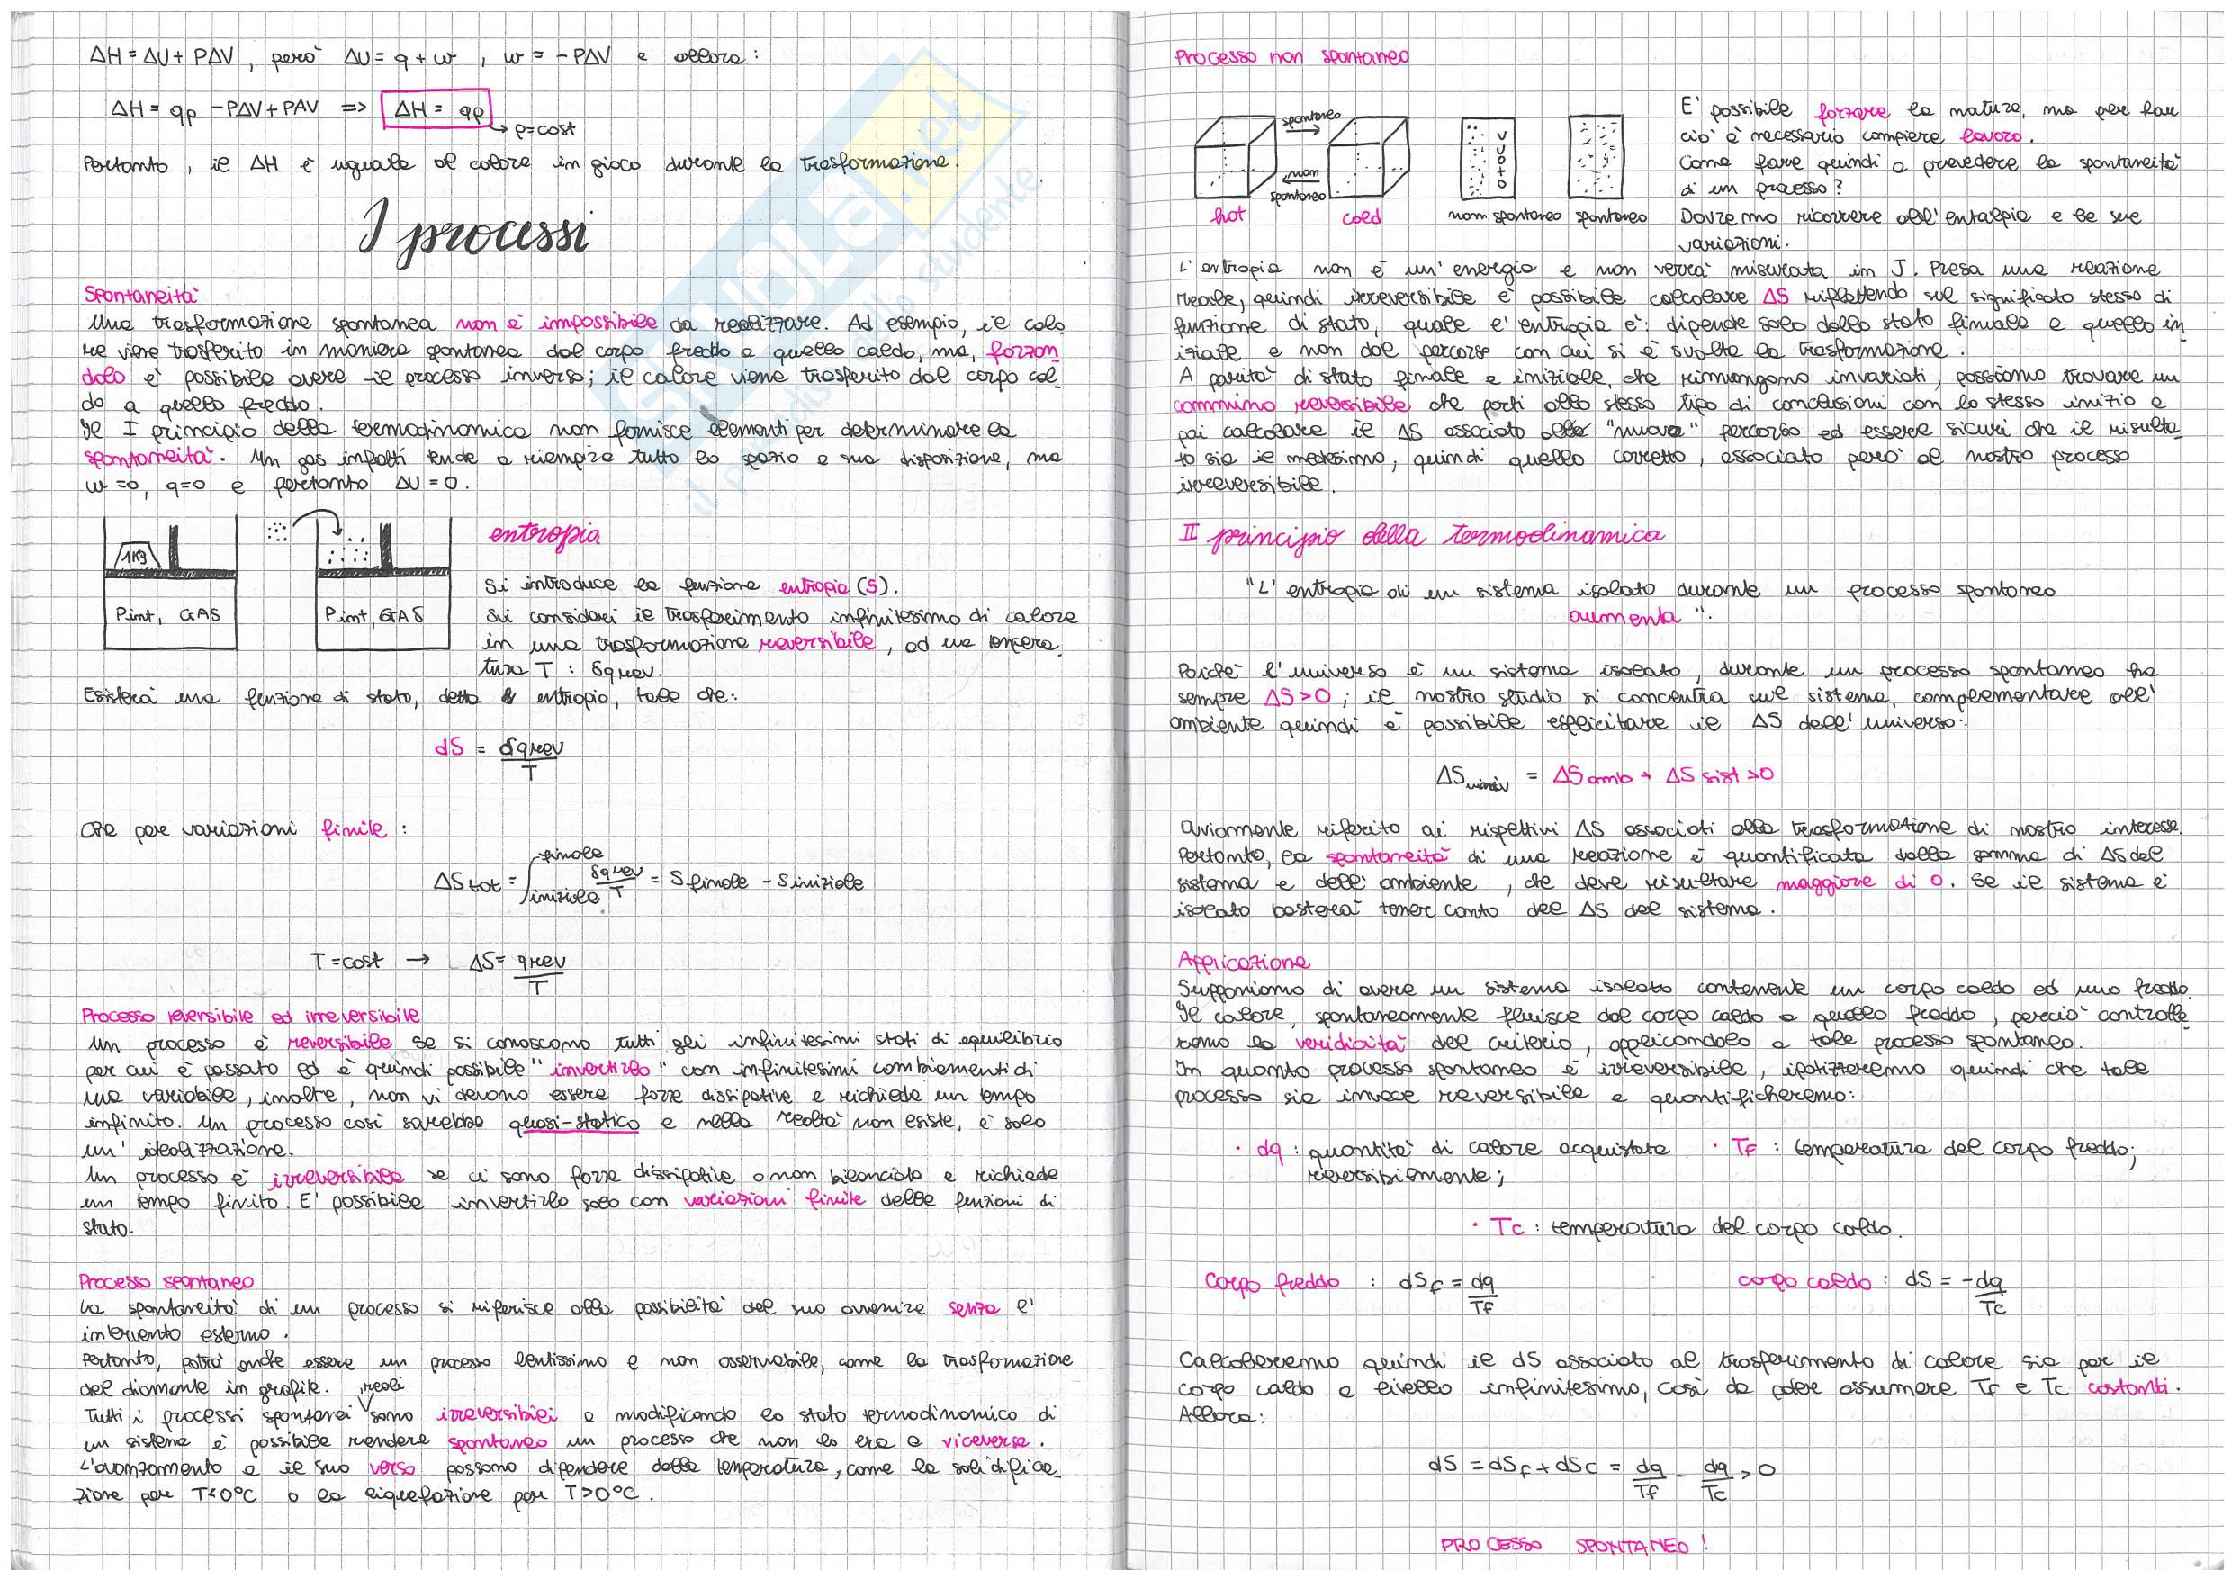 ΔH = ΔU + PΔV, però ΔU = q + w, w = -PΔV e allora:
ΔH = qp -PΔV+PΔV => ΔH = qp
→ p=cost
Pertanto, il ΔH è uguale al calore in gioco durante la trasformazione.
I processi
Spontaneità
Una trasformazione spontanea non è impossibile da realizzare. Ad esempio, il calo
re viene trasferito in maniera spontanea dal corpo freddo a quello caldo, ma, forzan
dolo è possibile avere il processo inverso; il calore viene trasferito dal corpo cal
do a quello freddo.
Il I principio della termodinamica non fornisce elementi per determinare la
spontaneità. Un gas infatti tende a riempire tutto lo spazio a sua disposizione, ma
w=0, q=0 e pertanto ΔU=0.
1Kg
Pint, GAS
Pint, GAS
entropia
Si introduce la funzione entropia (S).
Si consideri il trasferimento infinitesimo di calore
in una trasformazione reversibile, ad una tempera
tura T: δqrev.
Esisterà una funzione di stato, detta entropia, tale che:
dS = δqrev / T
Che per variazioni finite:
ΔStot = ∫ iniziale finale δqrev / T = S finale - S iniziale
T = cost → ΔS = qrev / T
Processo reversibile ed irreversibile
Un processo è reversibile se si conoscono tutti gli infinitesimi stati di equilibrio
per cui è passato ed è quindi possibile "invertirlo" con infinitesimi cambiamenti di
una variabile, inoltre, non vi devono essere forze dissipative e richiede un tempo
infinito. Un processo così sarebbe quasi-statico e nella realtà non esiste, è solo
un' idealizzazione.
Un processo è irreversibile se ci sono forze dissipative o non bilanciate e richiede
un tempo finito. E' possibile invertirlo solo con variazioni finite delle funzioni di
stato.
Processo spontaneo
La spontaneità di un processo si riferisce alla possibilità del suo avvenire senza l'
intervento esterno.
Pertanto, potrà anche essere un processo lentissimo e non osservabile, come la trasformazione
del diamante in grafite.
Tutti i processi spontanei reali sono irreversibili e modificando lo stato termodinamico di
un sistema è possibile rendere spontaneo un processo che non lo era e viceversa.
L'avanzamento e il suo verso possono dipendere dalla temperatura, come la solidifica
zione per T≤0°C o la liquefazione per T>0°C.
Processo non spontaneo
spontaneo
non
spontaneo
hot
cold
VUOTO
non spontaneo spontaneo
E' possibile forzare la natura, ma per far
ciò è necessario compiere lavoro.
Come fare quindi a prevedere la spontaneità
di un processo?
Dovremo ricorrere all'entalpia e le sue
variazioni.
L' entropia non è un' energia e non verrà misurata in J. Presa una reazione
reale, quindi irreversibile è possibile calcolare ΔS riflettendo sul significato stesso di
funzione di stato, quale l'entropia è: dipende solo dallo stato finale e quello in
iziale e non dal percorso con cui si è svolta la trasformazione.
A parità di stato finale e iniziale, che rimangono invariati, possiamo trovare un
cammino reversibile che porti allo stesso tipo di conclusioni con lo stesso inizio e
poi calcolare il ΔS associato allo "nuovo" percorso ed essere sicuri che il risulta
to sia il medesimo, quindi quello corretto, associato però al nostro processo
irreversibile.
II principio della termodinamica
"L' entropia di un sistema isolato durante un processo spontaneo
aumenta".
Poiché l'universo è un sistema isolato, durante un processo spontaneo ha
sempre ΔS>0; il nostro studio si concentra sul sistema, complementare all'
ambiente quindi è possibile esplicitare il ΔS dell' universo:
ΔSuniv = ΔSamb + ΔSsist >0
Oviamente riferito ai rispettivi ΔS associati alla trasformazione di nostro interesse.
Pertanto, la spontaneità di una reazione è quantificata dalla somma di ΔS del
sistema e dell' ambiente, che deve risultare maggiore di 0. Se il sistema è
isolato basterà tener conto del ΔS del sistema.
Applicazione
Supponiamo di avere un sistema isolato contenente un corpo caldo ed uno freddo.
Il calore, spontaneamente fluisce dal corpo caldo a quello freddo, perciò controlle
remo la veridicità del criterio, applicandolo a tale processo spontaneo.
In quanto processo spontaneo è irreversibile, ipotizzeremo quindi che tale
processo sia invece reversibile e quantificheremo:
· dq: quantità di calore acquistata · Tf: temperatura del corpo freddo;
reversibilmente;
· Tc: temperatura del corpo caldo.
Corpo freddo: dSf = dq / Tf corpo caldo: dS = -dq / Tc
Calcoleremo quindi il dS associato al trasferimento di calore sia per il
corpo caldo a livello infinitesimo, così da poter assumere Tf e Tc costanti.
Allora:
dS = dSf + dSc = dq / Tf - dq / Tc > 0
PROCESSO SPONTANEO!